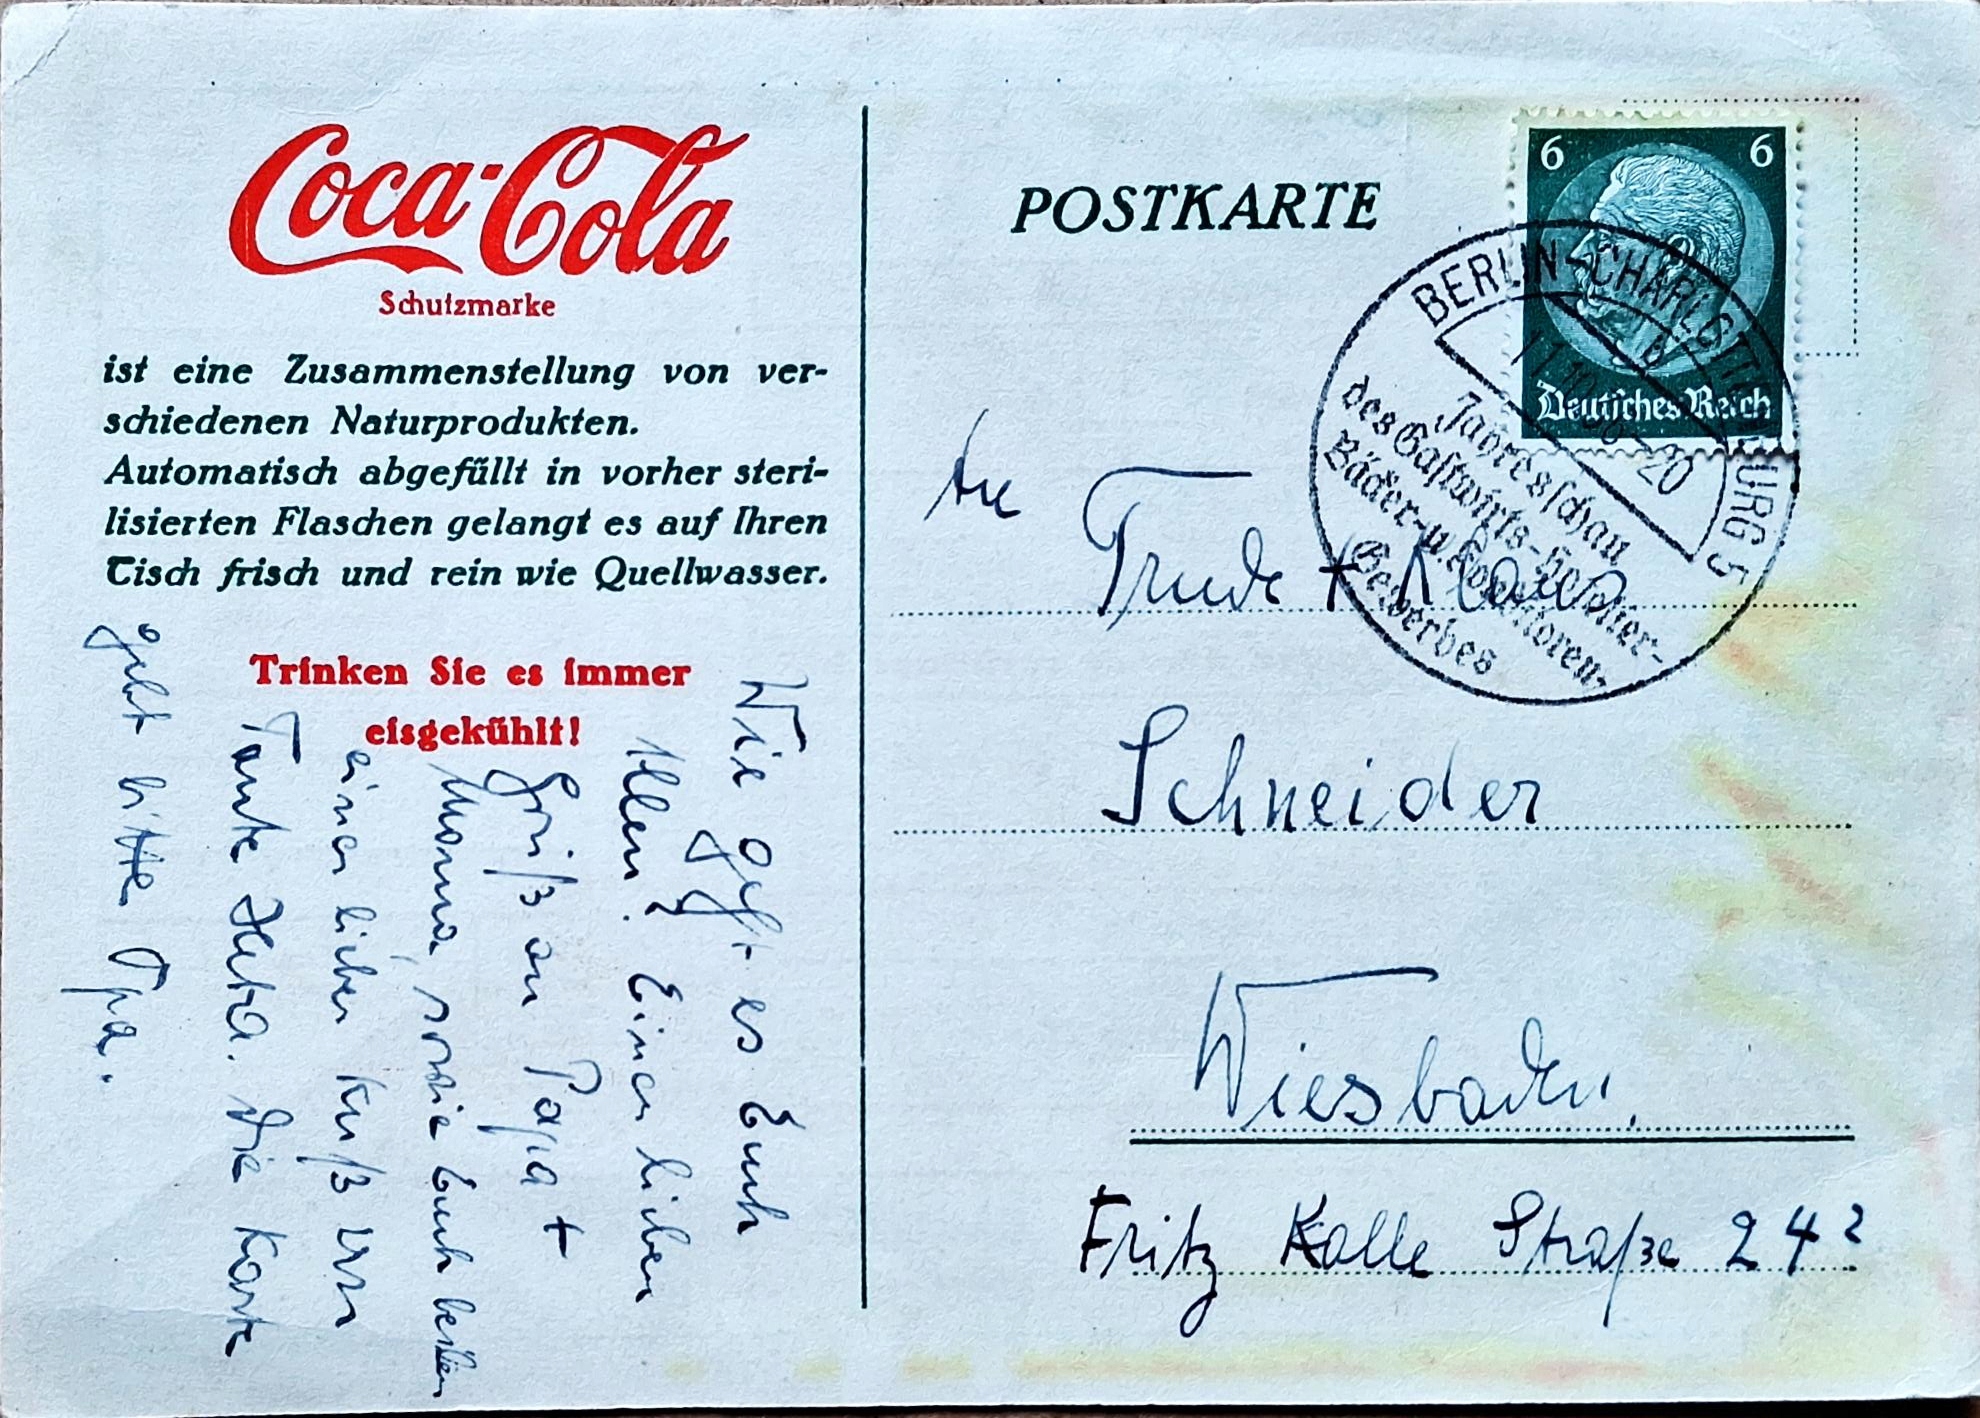 Coca-Cola
Schutzmarke
ist eine Zusammenstellung von ver-
schiedenen Naturprodukten.
Automatisch abgefüllt in vorher steri-
lisierten Flaschen gelangt es auf Ihren
Tisch frisch und rein wie Quellwasser.
Trinken Sie es immer
eisgekühlt!
Wie geht es Euch
Allen? Einen lieben
Gruß an Papa +
Mama, sowie Euch beiden
einen lieben Kuß von
Tante Herta. Die Karte
gebt bitte Opa.
POSTKARTE
6 6
Deutsches Reich
BERLIN-CHARLOTTENBURG 5
Jahresschau
des Gastwirts-Hotelier-
Bäcker-u. Konditoren-
Gewerbes
Trude + Klaus
Schneider
Wiesbaden.
Fritz Kalle Straße 24 2